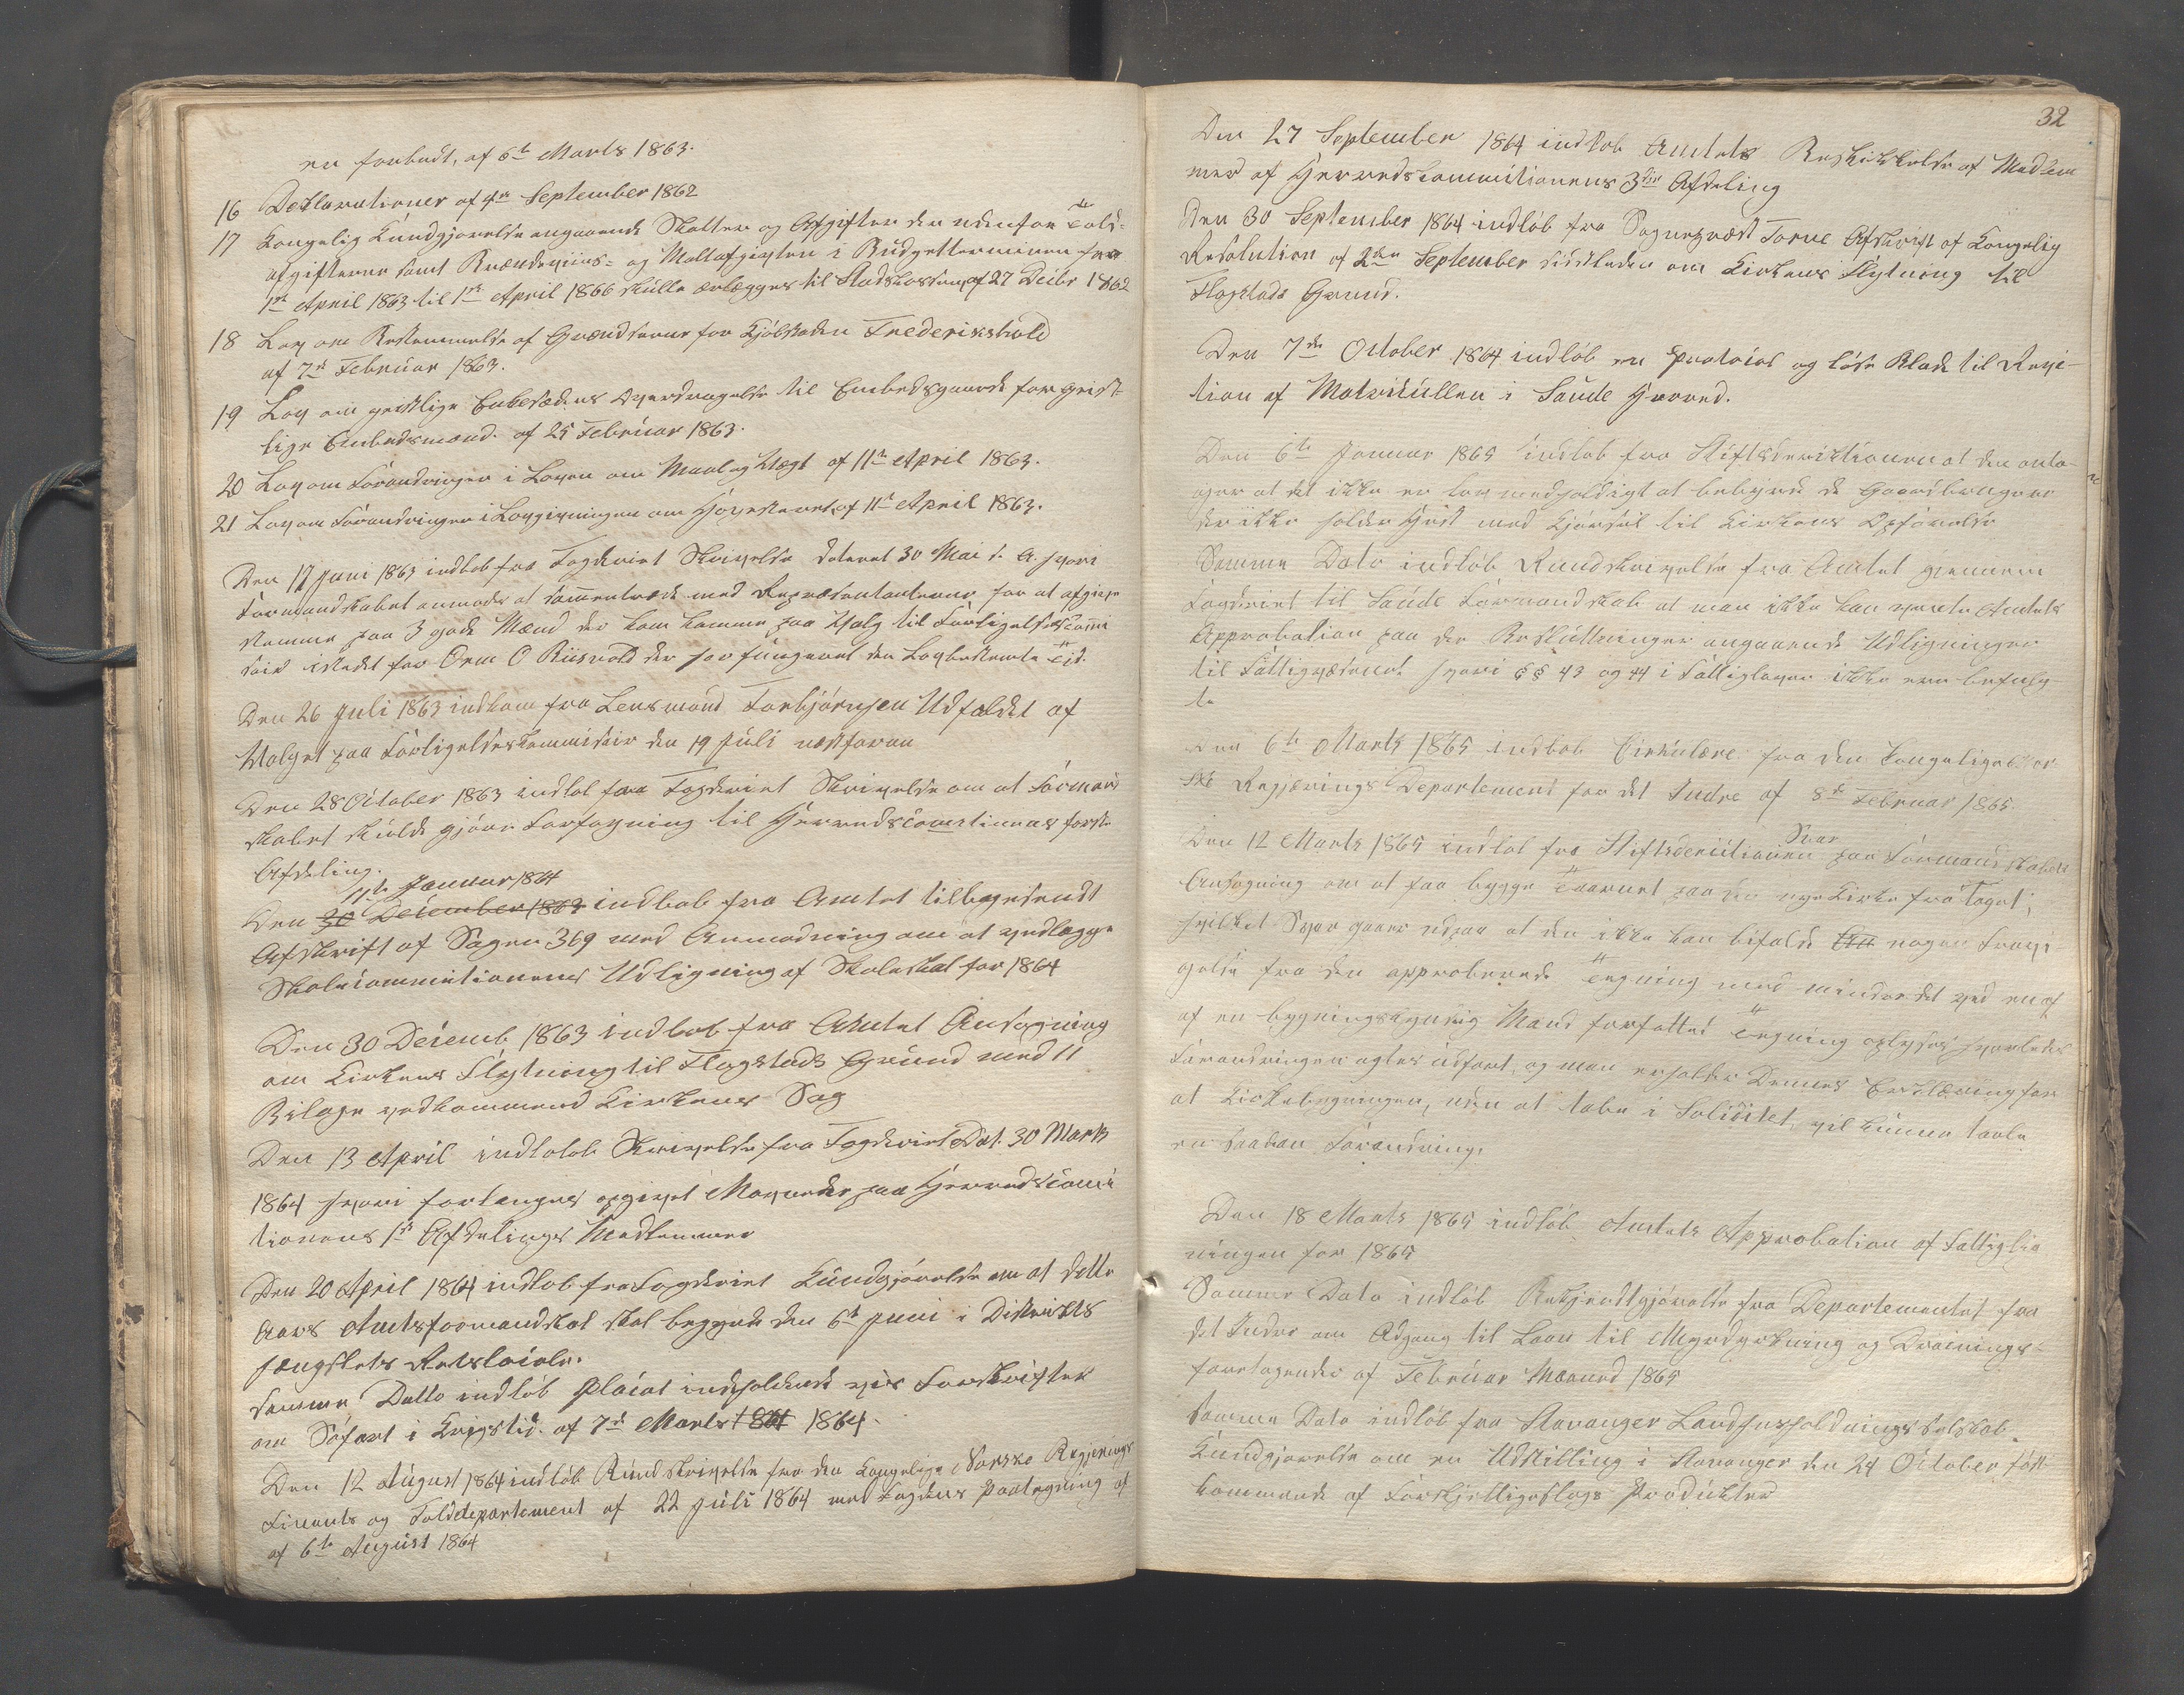 er forbudt, af 6te Marts 1863.
16 Deklarationer af 4de September 1862
17 Kongelig Kundgjørelse angaaende Skatter og Afgifter der udenfor Told-
afgifterne samt Brændeviins- og Maltafgivten i Budgetterminen fra
1ste April 1863 til 1ste April 1866 skulle erlægges til Stadskassen, af 27 Decbr 1862
18 Lov om Bestemmelse af Grændserne for Kjøbstaden Frederikshald
af 7de Februar 1863.
19 Lov om geistlige Enkesæders Overdragelse til Embedsgaarde for geist-
lige Embedsmænd. af 25 Februar 1863.
20 Lov om Forandringer i Loven om Maal og Vægt af 11te April 1863.
21 Lov om Forandringer i Lovgivningen om Høiesteret, af 11te April 1863.
Den 17 Juni 1863 indløb fra Fogderiet Skrivelse dateret 30 Mai d. A. hvori
Formandskabet anmodes at sammentræde med Repræsentanterne for at afgive
Stemme paa 3 gode Mænd der kan komme paa Valg til Forligelseskommi
sair istedet for Orm O Riisvold der har fungeret den Lovbestemte Tid.
Den 26 Juli 1863 indkom fra Lensmand Torbjørnsen Udfaldet af
Valget paa Forligelseskommisair den 19 Juli næstforan
Den 28 October 1863 indløb fra Fogderiet Skrivelse om at Formand
skabet skulde gjøre Forføyning til Herredscomitionens første
Afdeling.
11te Januar 1864
Den 30 December 1863 indløb fra Amtet tilbagesendt
Afskrift af Sagen 369 med Anmodning om at vedlægge
Skolecommitionens Udligning af Skoleskat for 1864
Den 30 Decemb 1863 indløb fra Amtet Ansøgning
om Kirkens Flytning til Flogstads Grund med 11
Bilage vedkommend Kirkens Sag
Den 13 April indlobb Skrivelse fra Fogderiet Dat. 30 Marts
1864 hvori forlanges opgivet Møgender paa Herredscomi
tionens 1ste Afdelings Medlemmer
Den 20 April 1864 indløb fra Fogderiet Kundgjørelse om at dette
Aars Amtsformandskab skal begynde den 6te Juni i Distrikts
fængslets Retslocale.
Samme Datto indløb Placat indeholdende vis Forskrifter
om Søfart i Krigstid. af 7de Marts 1861 1864.
Den 12 August 1864 indløb Rundskrivelse fra den Kongelige Norske Regjerings
Finants og Tolddepartement af 22 Juli 1864 med Fogdens Paategning af
af 6te August 1864
32
Den 27 September 1864 indløb Amtets Beskikkelse af Medlem
mer af Herredscommitionens 3die Afdeling
Den 30 September 1864 indløb fra Sognepræst Torne Afskrift af Kongelig
Resolution af 2den September sidstleden om Kirkens Flytning til
Flogstads Grund.
Den 7de October 1864 indløb en Protocol og løse Blade til Revi-
tion af Matrikullen i Saude Herred.
Den 6te Januar 1865 indløb fra Stiftsdirektionen at den anta-
ger at det ikke er lovmedholdigt at bebyrde de Gaardbrugere
der ikke holder Hest med Kjørsel til Kirkens Opførelse
Samme Dato indløb Rundskrivelse fra Amtet gjennem
Fogderiet til Saude Formandskab at man ikke kan vente Amtets
Approbation paa de Beslutninger angaaende Udligninger
til Fattigvæsenet hvori §§ 43 og 44 i Fattigloven ikke ere befulg-
te
Den 6te Marts 1865 indløb Cirkulære fra den Kongelige Nor-
ske Regjerings Departement for det Indre af 8de Februar 1865.
Den 12 Marts 1865 indløb fra Stiftsdirectionen Svar paa Formandskabets
Ansøgning om at faa bygge Taarnet paa den nye Kirke fra Taget;
hvilket Svar gaar udpaa at den ikke kan bifalde nogen Fravi-
gelse fra den approberede Tegning med mindre det ved en af
af en bygningskyndig Mand forfattet Tegning oplyses hvorledes
Forandringen agtes udført, og man erholder Dennes Erklæring for
at Kirkebygningen, uden at tabe i Soliditet, vil kunne taale
en saadan Forandring.
Den 18 Marts 1865 indløb Amtets Approbation af Fattiglig
ningen for 1865
Samme Dato indløb Bekjendtgjørelse fra Departementet for
det Indre om Adgang til Laan til Myrdyrkning og Drainings-
foretagender af Februar Maaned 1865
Samme Dato indløb fra Stavanger Landhusholdningsselskab
Kundgjørelse om en Udstilling i Stavanger den 24 October først-
kommende af Forskjelligeslags Produkter